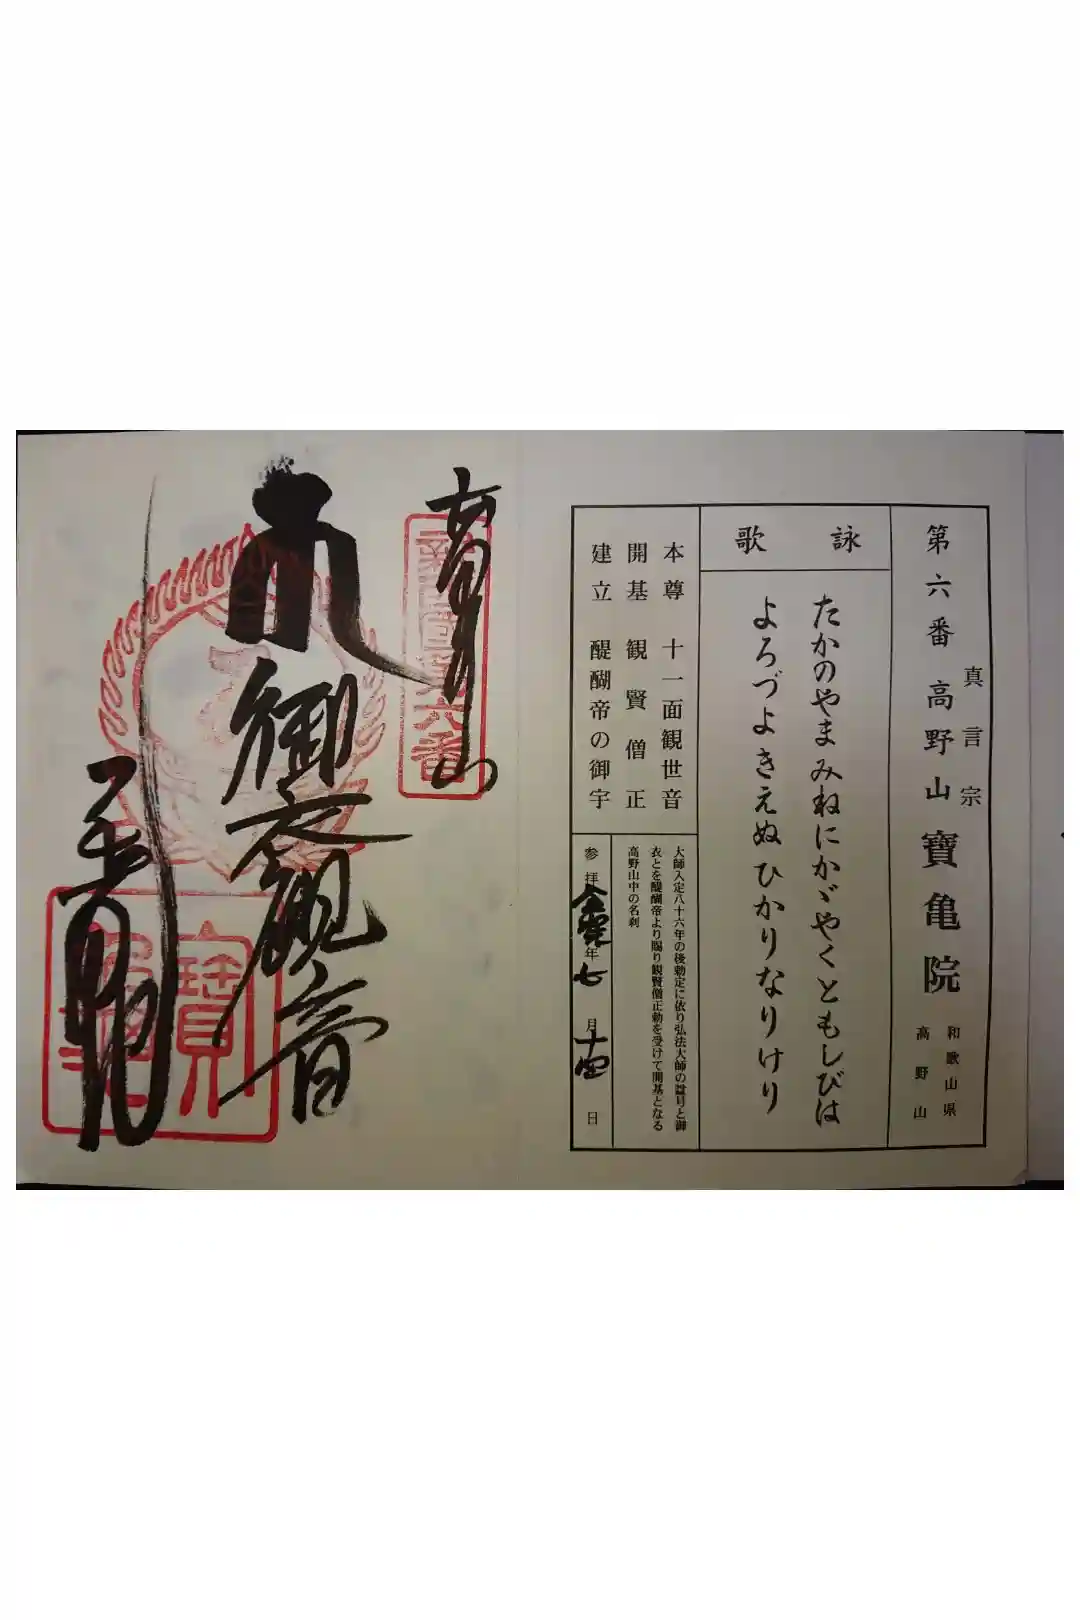 第六番 高野山 寶亀院
真言宗
和歌山県
高野山
詠歌
たかのやまみねにかゞやくともしびは
よろづよきえぬひかりなりけり
本尊 十一面観世音
開基 観賢僧正
建立 醍醐帝の御宇
大師入定八十六年の後勅定に依り弘法大師の諡号と御
衣とを醍醐帝より賜り観賢僧正勅を受けて開基となる
高野山中の名刹
参拝 年 七月十四日
高野山
六番
御衣観音
寶